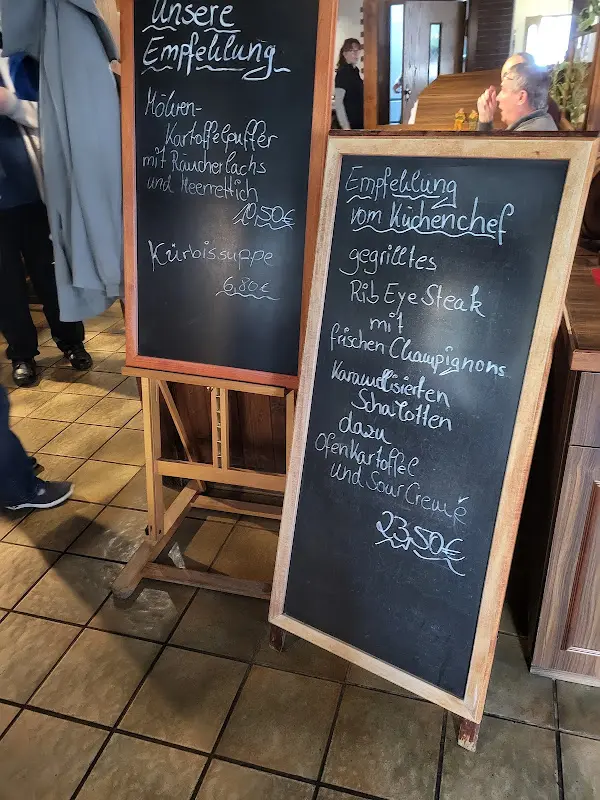 Unsere
Empfehlung
Möhren-
Kartoffelpuffer
mit Räucherlachs
und Meerrettich
10,50€
Kürbissuppe
6,80€
Empfehlung
vom Küchenchef
gegrilltes
Rib Eye Steak
mit
frischen Champignons
Karamellisierten
Schalotten
dazu
Ofenkartoffel
und Sour Cremé
23,50€